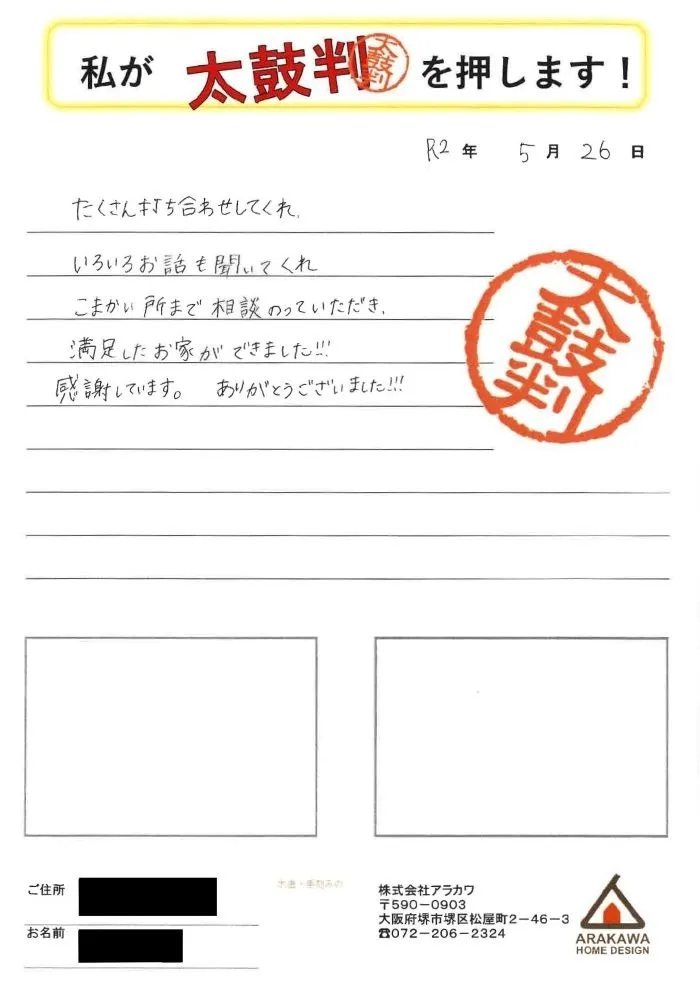 私が 太鼓判 太鼓判 を押します！
R2 年 5 月 26 日
たくさん打ち合わせしてくれ、
いろいろお話も聞いてくれ
こまかい所まで相談のっていただき、
満足したお家ができました!!!
感謝しています。 ありがとうございました!!!
太鼓判
ご住所
お名前
木造・手刻みの
株式会社アラカワ
〒590－0903
大阪府堺市堺区松屋町2－46－3
☎072－206－2324
ARAKAWA
HOME DESIGN